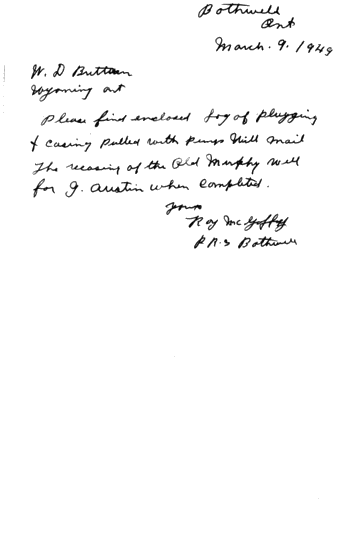 Bothwell
Ont
March. 9. 1949
W. D Brittain
Wyoming ont
Please find enclosed Log of plugging
& casing pulled with pumps Will mail
The recasing of the Old Murphy well
for J. Austin when Completed.
Yours
Roy Mc
R R. 3 Bothwell